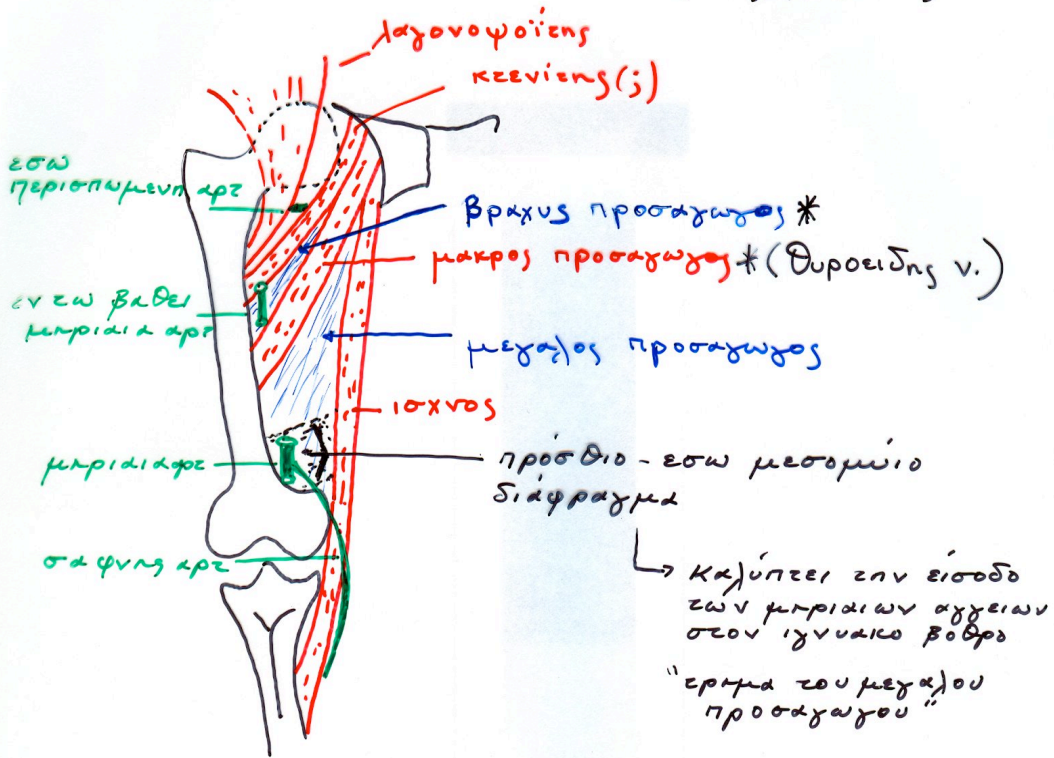 λαγονοψοΐτης
κτενίτης (;)
εσω
περισπωμενη αρτ
βραχυς προσαγωγος *
μακρος προσαγωγος * (θυροειδης ν.)
εν τω βαθει
μηριαια αρτ
μεγαλος προσαγωγος
ισχνος
μηριαια αρτ
πρόσθιο - εσω μεσομύιο
διάφραγμα
σαφηνης αρτ
καλύπτει την είσοδο
των μηριαιων αγγειων
στον ιγνυακο βοθρο
"τρημα του μεγαλου
προσαγωγου"